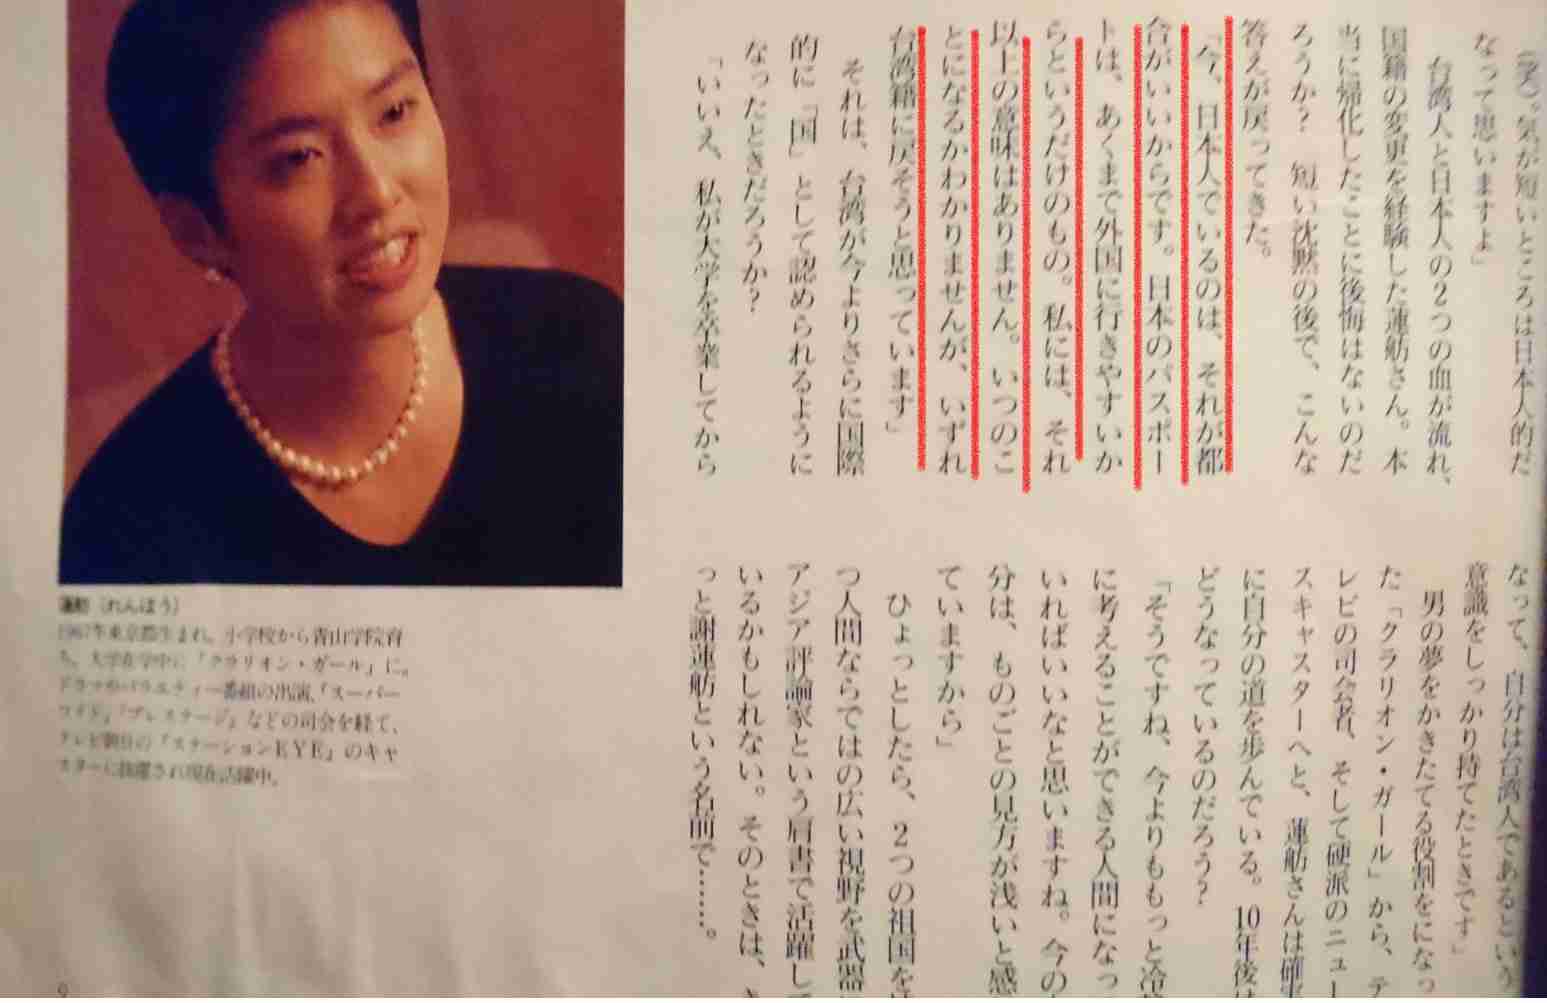 (笑)。気が短いところは日本人的だ
なって思いますよ」
台湾人と日本人の2つの血が流れ、
国籍の変更を経験した蓮舫さん。本
当に帰化したことに後悔はないのだ
ろうか？ 短い沈黙の後で、こんな
答えが戻ってきた。
「今、日本人でいるのは、それが都
合がいいからです。日本のパスポー
トは、あくまで外国に行きやすいか
らというだけのもの。私には、それ
以上の意味はありません。いつのこ
とになるかわかりませんが、いずれ
台湾籍に戻そうと思っています」
それは、台湾が今よりさらに国際
的に「国」として認められるように
なったときだろうか？
「いいえ、私が大学を卒業してから
なって、自分は台湾人であるという
意識をしっかり持てたときです」
男の夢をかきたてる役割をになっ
た「クラリオン・ガール」から、テ
レビの司会者、そして硬派のニュー
スキャスターへと、蓮舫さんは確実
に自分の道を歩んでいる。10年後は
どうなっているのだろう？
「そうですね、今よりももっと冷静
に考えることができる人間になっ
いればいいなと思いますね。今の
分は、ものごとの見方が浅いと感
ていますから」
ひょっとしたら、2つの祖国を
つ人間ならではの広い視野を武器に
アジア評論家という肩書で活躍して
いるかもしれない。そのときは、
っと謝蓮舫という名前で……。
蓮舫（れんほう）
1967年東京都生まれ。小学校から青山学院育
ち。大学在学中に「クラリオン・ガール」に。
ドラマやバラエティー番組の出演、「スーパー
ワイド」「プレステージ」などの司会を経て、
テレビ朝日の「ステーションEYE」のキャ
スターに抜擢され現在活躍中。